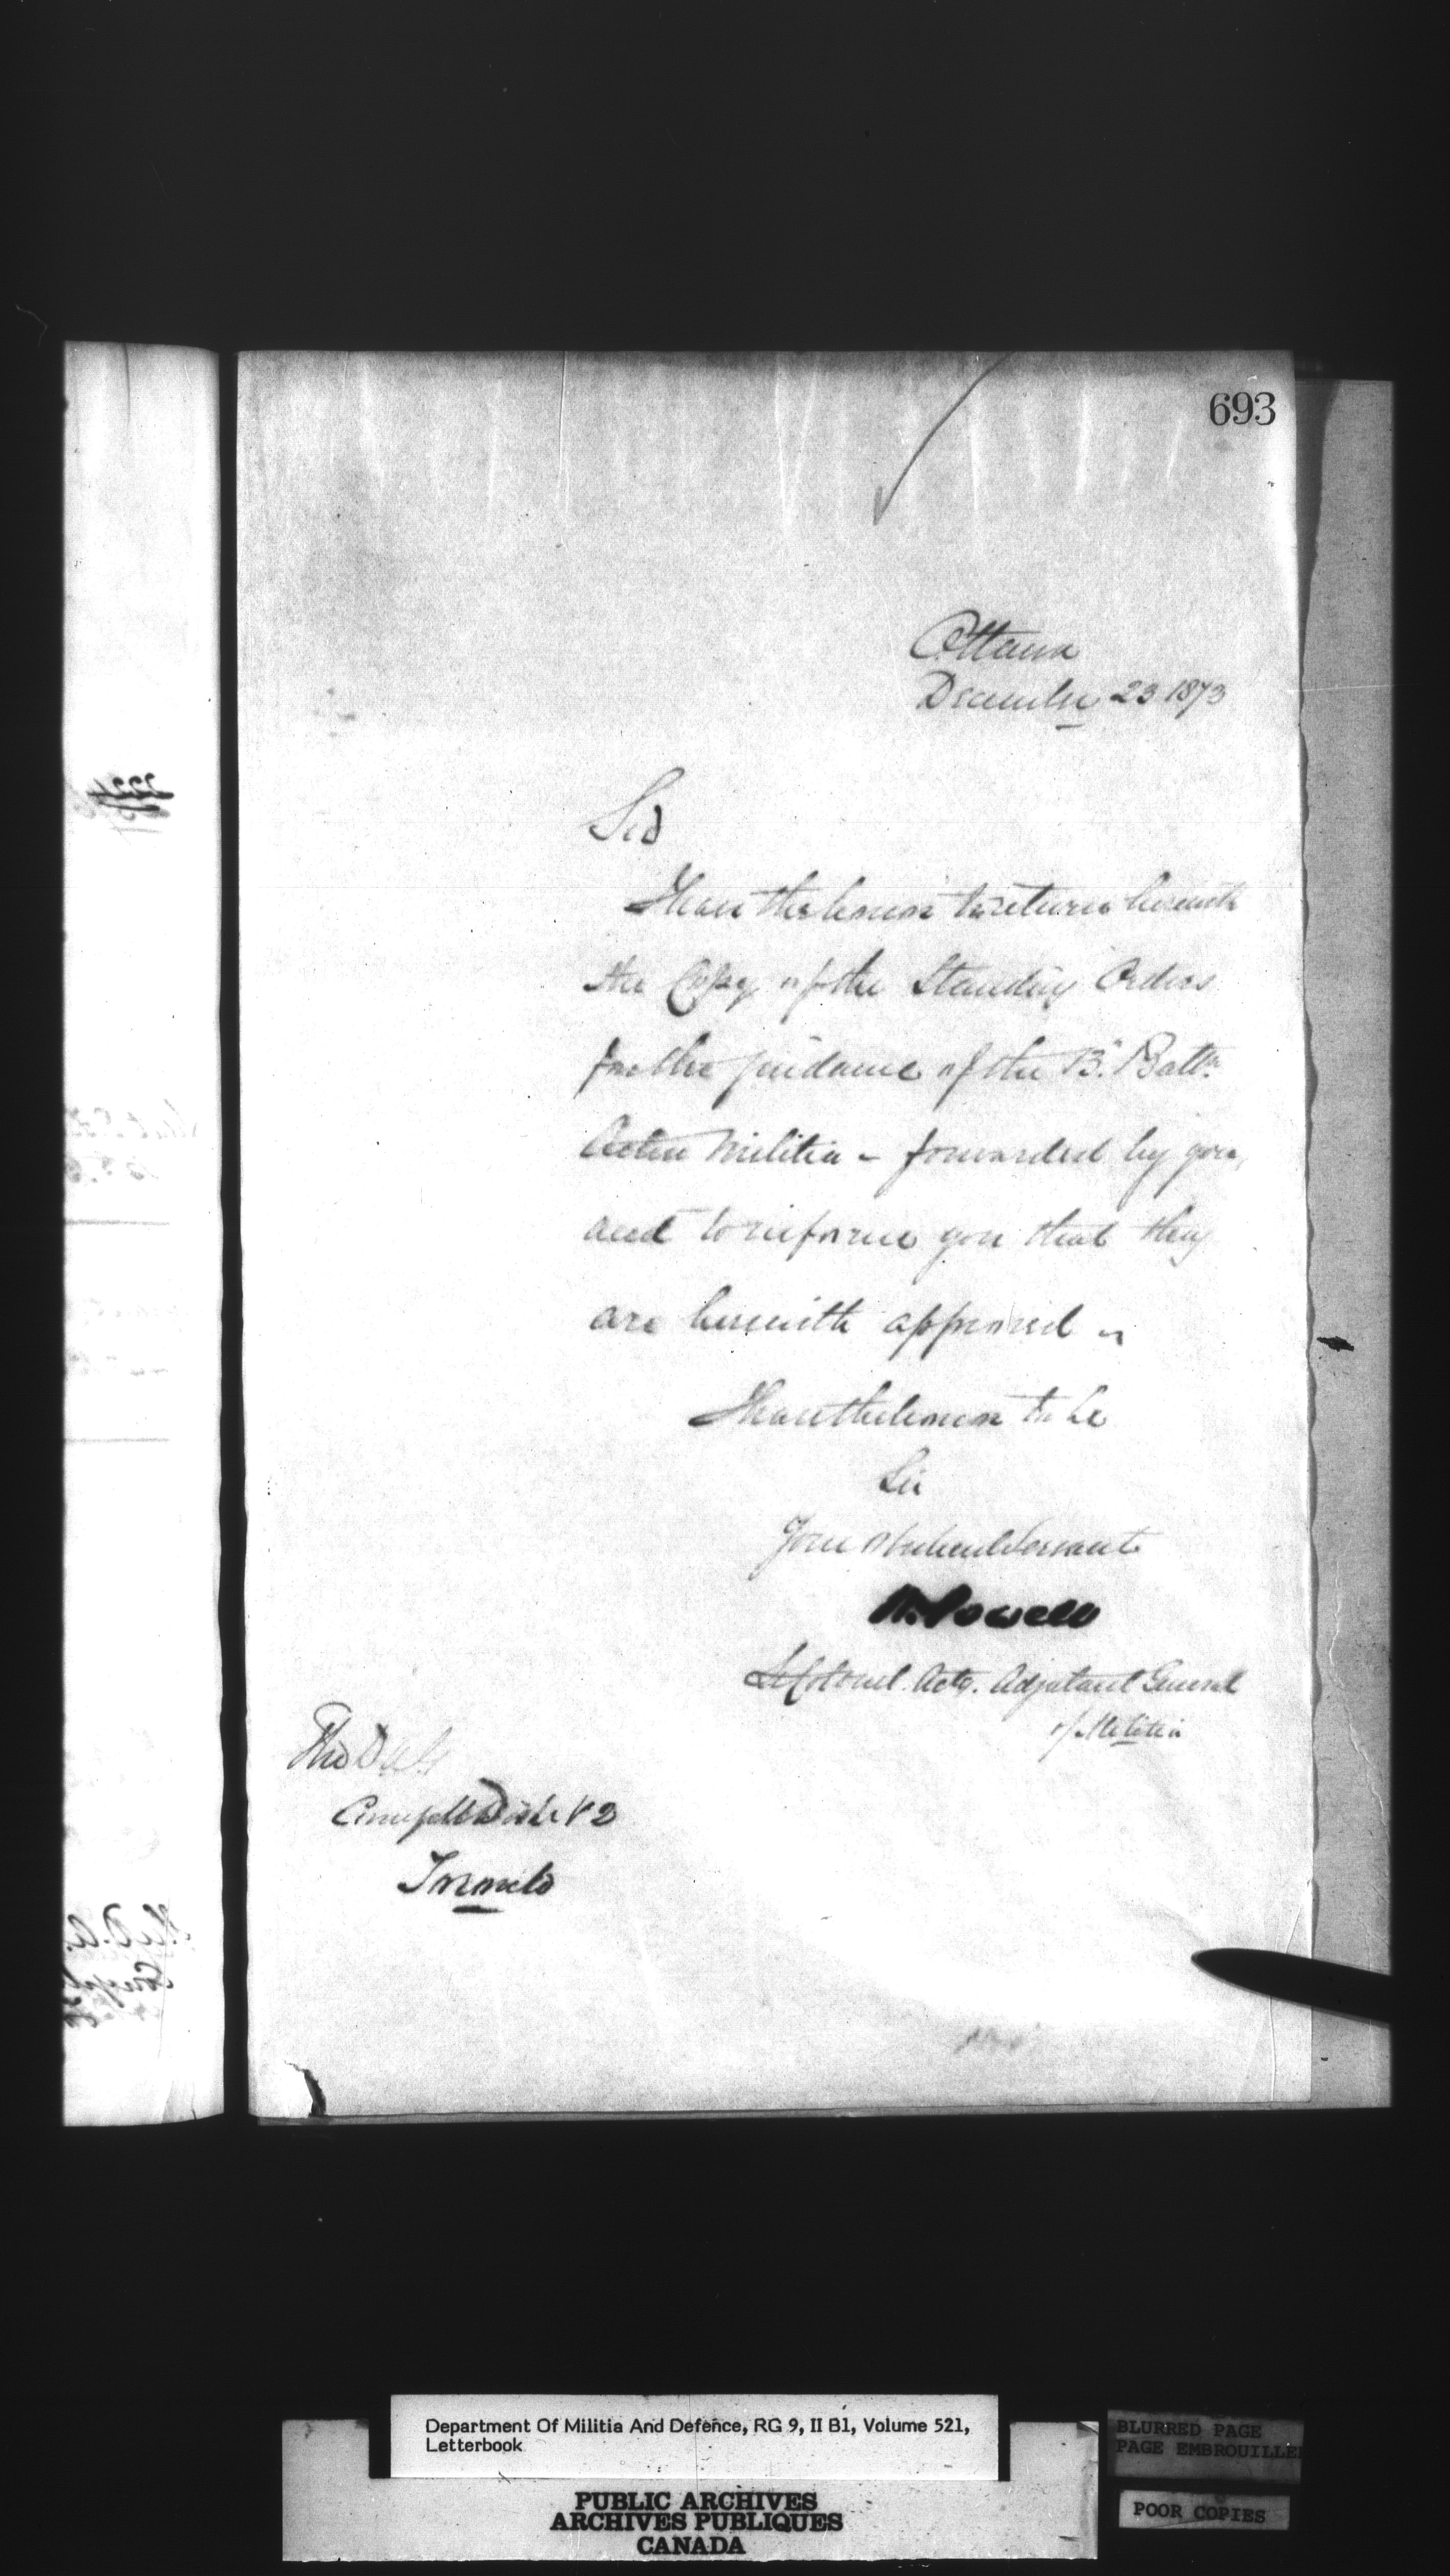 693
Ottawa
December 23 1873
Sir
I have the honor to return herewith
the Copy of the Standing Orders
for the guidance of the 13" Battn
Active Militia - forwarded by you,
and to inform you that they
are herewith approved
I have the honor to be
Sir
Your obedient Servant
W. Powell
Lt Colonel. Actg. Adjutant General
of Militia
The D.A.G.
Comg Mil Dist No 2
Toronto
Department Of Militia And Defence, RG 9, II B1, Volume 521,
Letterbook
PUBLIC ARCHIVES
ARCHIVES PUBLIQUES
CANADA
BLURRED PAGE
PAGE EMBROUILLE
POOR COPIES